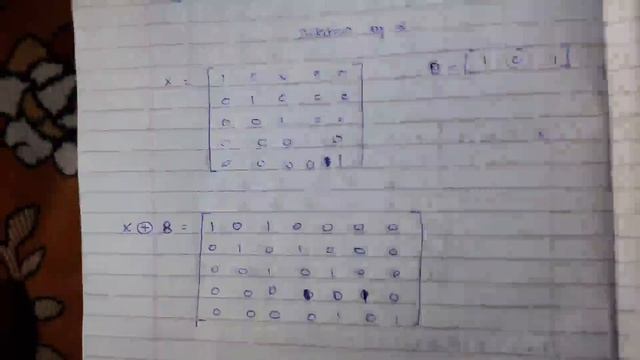 Dilation of
X = [ 1 0 0 0 0
B = [ 1 0 1 ]
0 1 0 0 0
0 0 1 0 0
0 0 0 0
0 0 0 0 1 ]
X ⊕ B = [ 1 0 1 0 0 0 0
0 1 0 1 0 0 0
0 0 1 0 1 0 0
0 0 0 1 0 1 0
0 0 0 0 1 0 1 ]